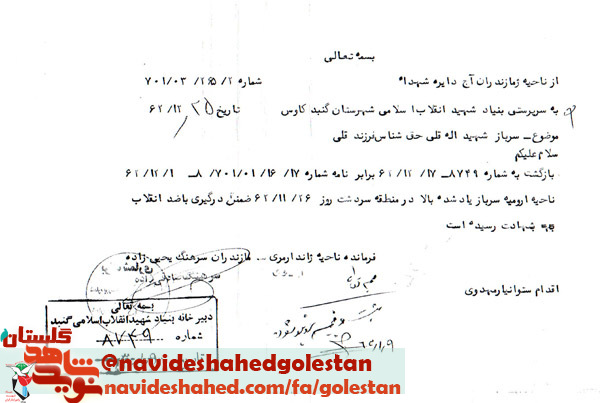 بسمه تعالی
از ناحیه ژمازندران آج دایره شهداء شماره ۲/ ۲۶۵/ ۷۰۱/۰۳
به سرپرستی بنیاد شهید انقلاب اسلامی شهرستان گنبد کاوس تاریخ ۲۵/ ۶۲/۱۲
موضوع ــ سرباز شهید اله قلی حق شناس فرزند قلی
سلام علیکم
بازگشت به شماره ۸۷۴۹ــ ۱۷/ ۶۲/۱۲ برابر نامه شماره ۱۷/ ۱۶/ ۷۰۱/۰۱/ ۸ــ ۱/ ۶۲/۱۲
ناحیه ارومیه سرباز یاد شده بالا در منطقه سردشت روز ۲۶/ ۶۲/۱۱ ضمن درگیری با ضد انقلاب
به شهادت رسیده است
فرمانده ناحیه ژاندارمری ــ مازندران سرهنگ یحیی زاده
اقدام ستوانیار مهدوی
بسمه تعالی
دبیرخانه بنیاد شهید انقلاب اسلامی گنبد
شماره ۸۷۴۹
نوید شاهد گلستان
@navideshahedgolestan
navideshahed.com/fa/golestan